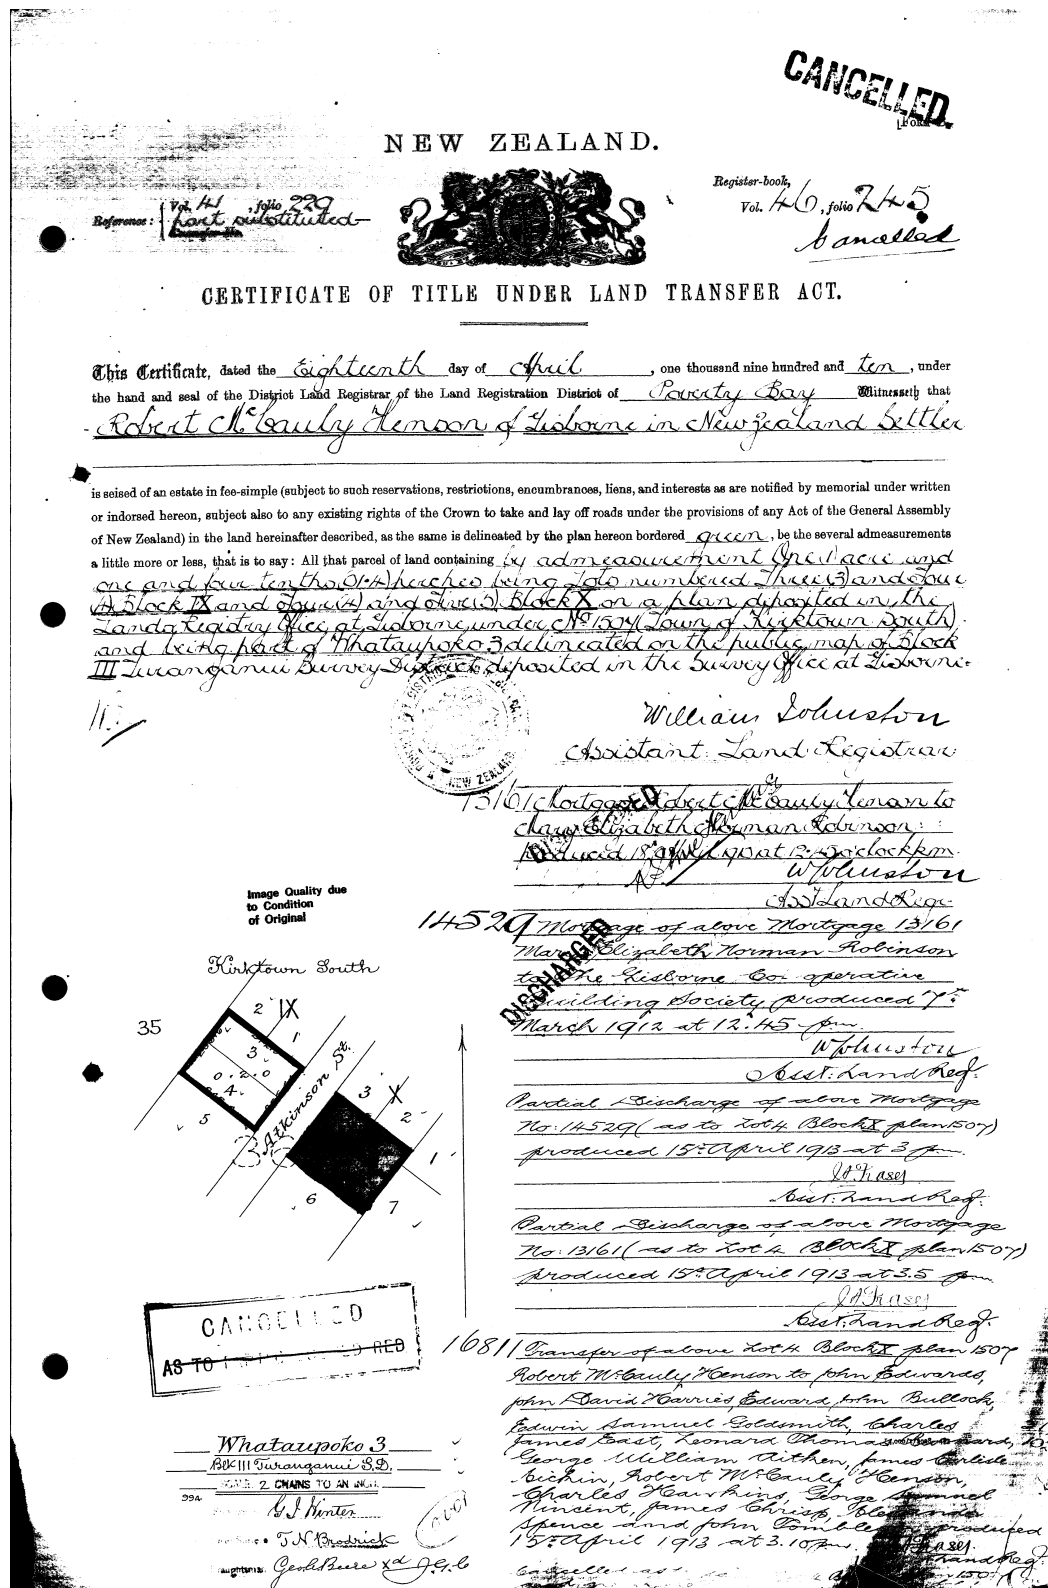 CANCELLED.
NEW ZEALAND.
Reference:
Vol. 41, folio 229
part substituted
Register-book,
Vol. 46, folio 245
Cancelled
CERTIFICATE OF TITLE UNDER LAND TRANSFER ACT.
This Certificate, dated the Eighteenth day of April, one thousand nine hundred and ten, under
the hand and seal of the District Land Registrar of the Land Registration District of Poverty Bay Witnesseth that
Robert McCauly Henson of Gisborne in New Zealand Settler
is seised of an estate in fee-simple (subject to such reservations, restrictions, encumbrances, liens, and interests as are notified by memorial under written
or indorsed hereon, subject also to any existing rights of the Crown to take and lay off roads under the provisions of any Act of the General Assembly
of New Zealand) in the land hereinafter described, as the same is delineated by the plan hereon bordered green, be the several admeasurements
a little more or less, that is to say: All that parcel of land containing by admeasurement One 1 acre and
one and four tenths (1.4) perches being Lots numbered Three (3) and Four
(4) Block IX and Four (4) and Five (5) Block X on a plan deposited in the
Lands Registry Office at Gisborne under No 1507 (Town of Kirktown South)
and being part of Whataupoko 3 delineated on the public map of Block
III Turanganui Survey District deposited in the Survey Office at Gisborne.
William Johnston
Assistant Land Registrar
13161 Mortgage Robert McCauly Henson to
Mary Elizabeth Norman Robinson
produced 18th April 1910 at 12.45 o'clock pm.
W Johnston
Asst Land Regr
DISCHARGED
Image Quality due
to Condition
of Original
14529 Mortgage of above Mortgage 13161
Mary Elizabeth Norman Robinson
to The Gisborne Co operative
Building Society produced 7th
March 1912 at 12.45 pm.
DISCHARGED
W Johnston
Asst: Land Reg.
Kirktown South
35
2 IX
1
3
0.2.0
4
5
Atkinson St.
3 X
2
1
6
7
Partial Discharge of above Mortgage
No: 14529 (as to Lot 4 Block X plan 1507)
produced 15th April 1913 at 3 pm.
J A Fraser
Asst: Land Reg.
Partial Discharge of above Mortgage
No: 13161 (as to Lot 4 Block X plan 1507)
produced 15th April 1913 at 3.5 pm
J A Fraser
Asst: Land Reg.
CANCELLED
AS TO
16811 Transfer of above Lot 4 Block X plan 1507
Robert McCauly Henson to John Edwards,
John David Harries, Edward John Bullock,
Edwin Samuel Goldsmith, Charles
James East, Leonard Thomas
George William Aitken, James Carlisle
Robert McCauly Henson,
Charles Hawkins, George Samuel
Vincent, James Chrisp,
Spence and John produced
15th April 1913 at 3.10 pm.
Fraser.
Land Reg.
Whataupoko 3
Blk III Turanganui S.D.
2 CHAINS TO AN INCH
G J Winter
T.N. Brodrick
Geo. Bure